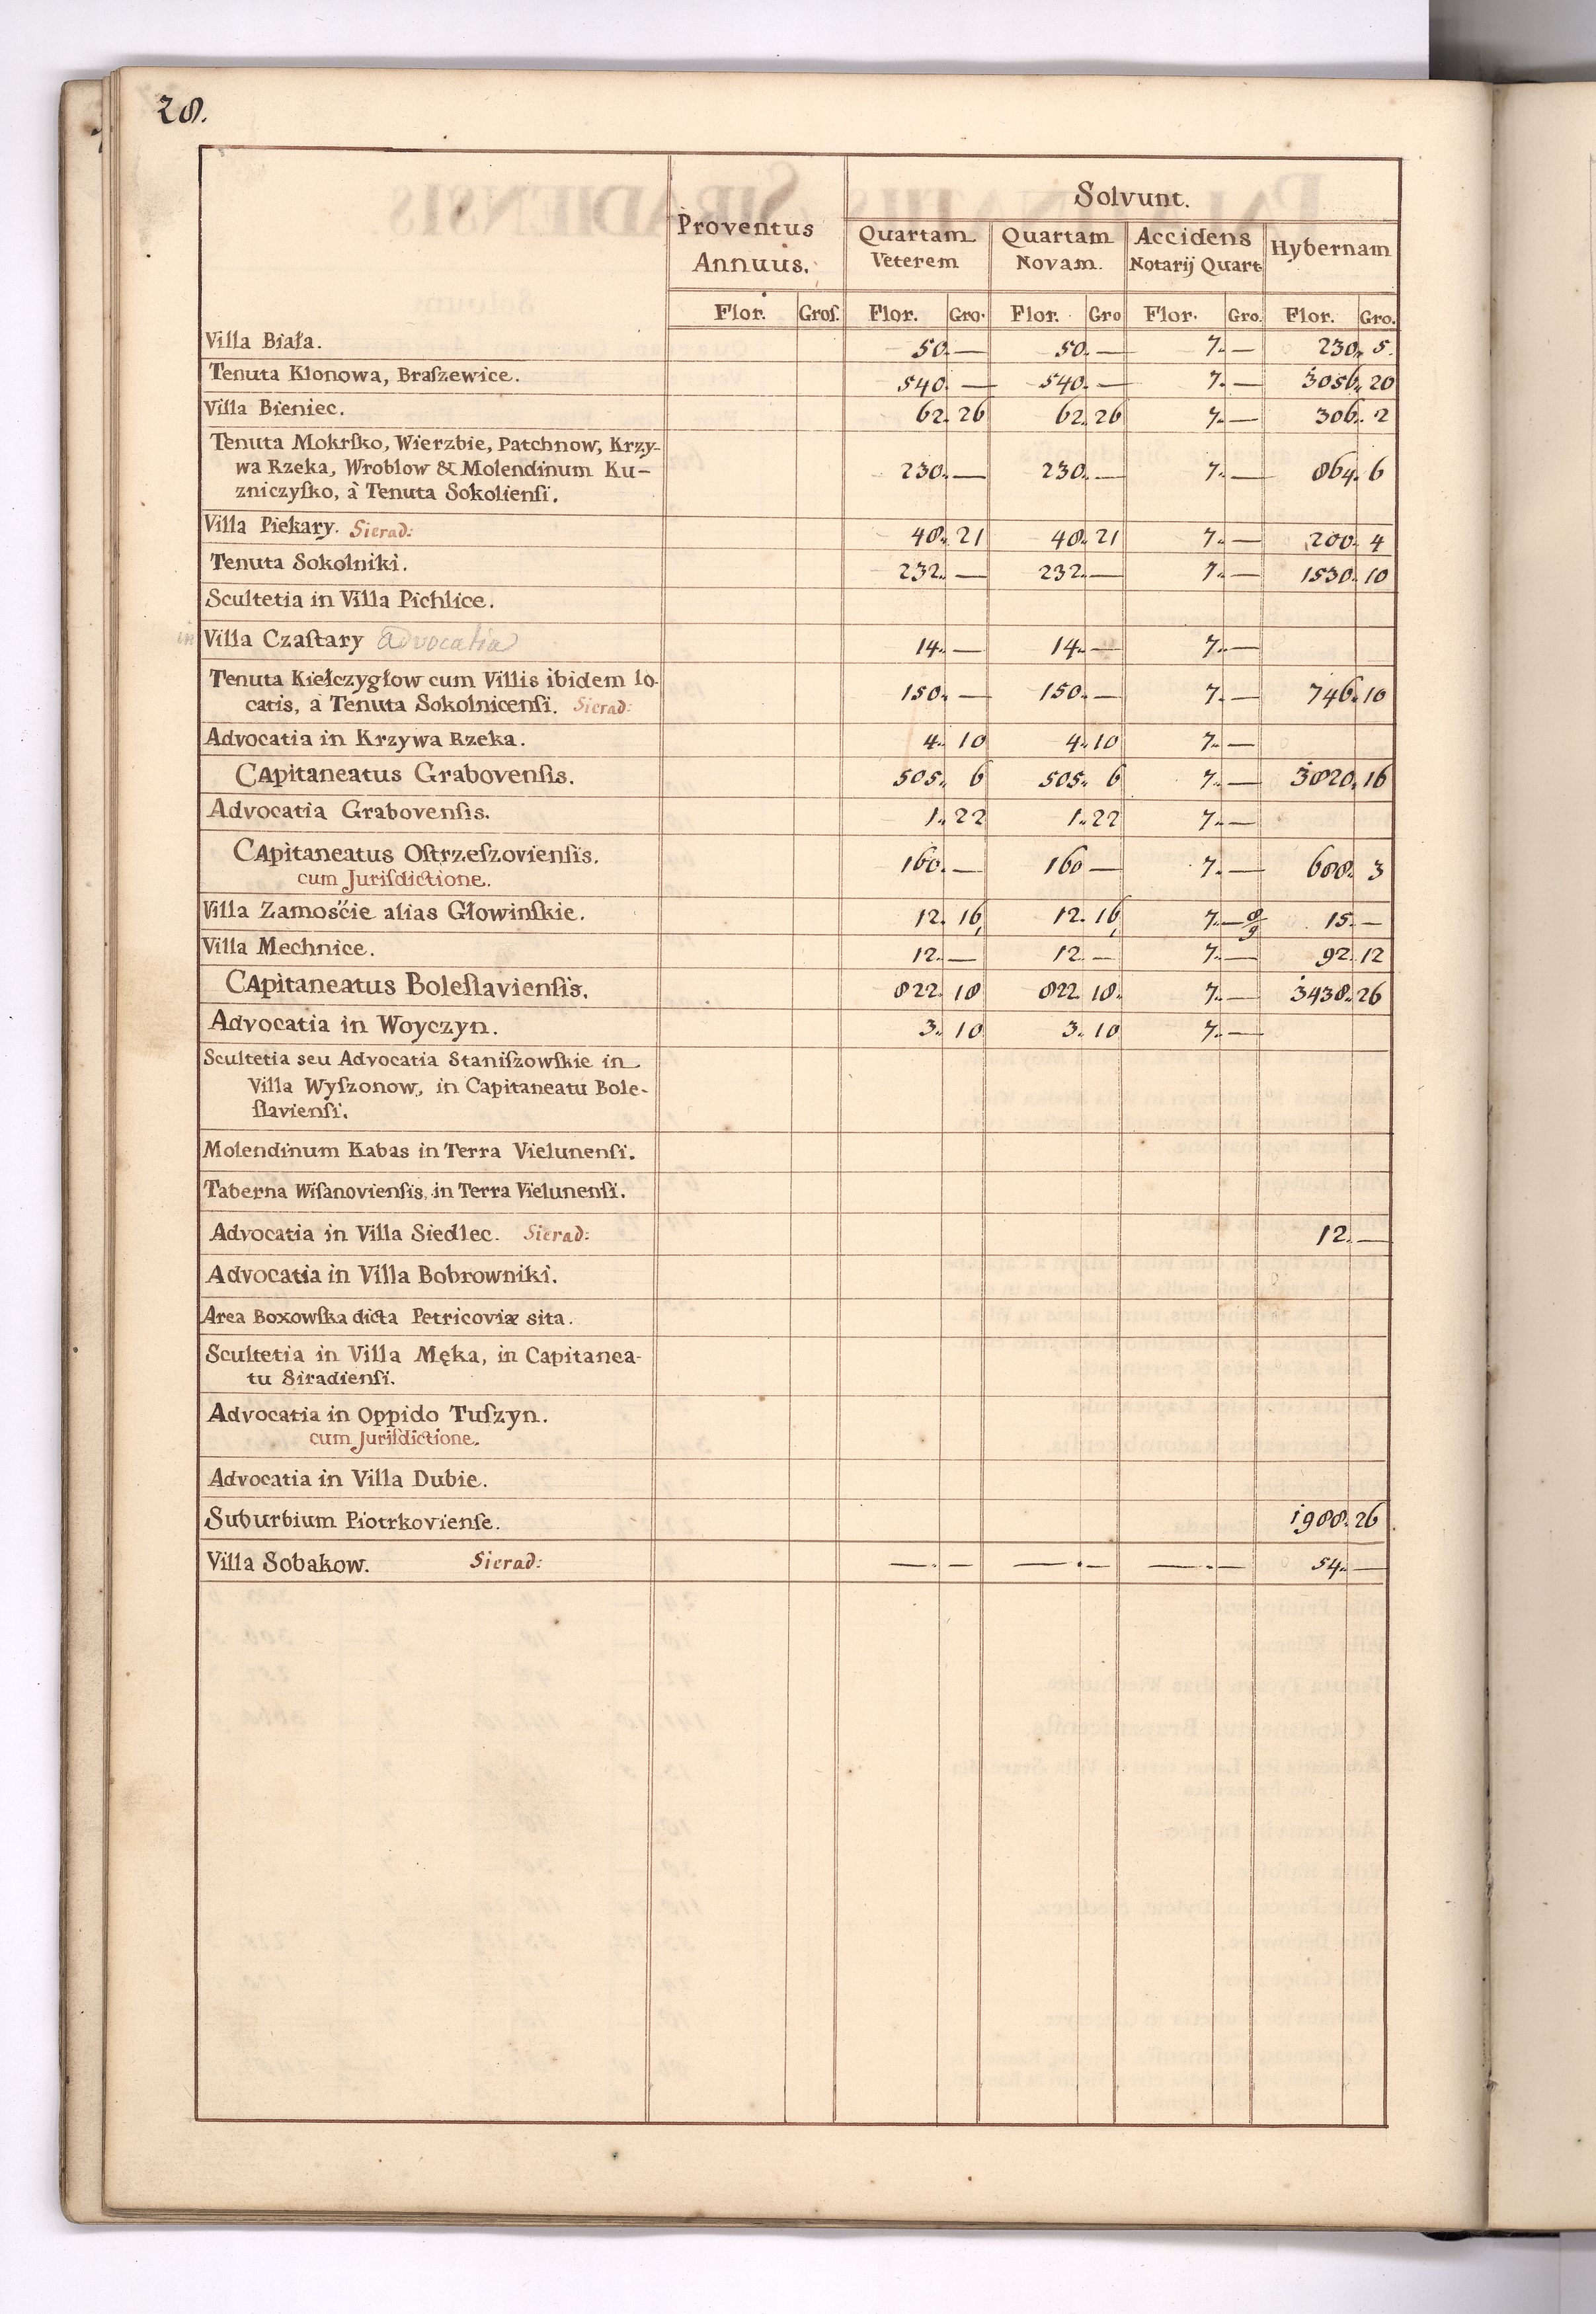 28.
Proventus Annuus.
Solvunt.
Quartam Veterem
Quartam Novam.
Accidens Notarij Quart
Hybernam
Flor. Groſ. Flor. Gro. Flor. Gro Flor. Gro. Flor. Gro.
Villa Biała. 50. — 50. — 7. — 230. 5.
Tenuta Klonowa, Braſzewice. 540. — 540. — 7. — 3056. 20
Villa Bieniec. 62. 26 62. 26 7. — 306. 2
Tenuta Mokrſko, Wierzbie, Patchnow, Krzy-
wa Rzeka, Wroblow & Molendinum Ku- 230. — 230. — 7. — 864. 6
zniczyſko, à Tenuta Sokolienſi.
Villa Piekary. Sierad: 48. 21 48. 21 7. — 200. 4
Tenuta Sokolniki. 232. — 232. — 7. — 1530. 10
Scultetia in Villa Pichlice.
in Villa Czaſtary advocatia 14. — 14. — 7. —
Tenuta Kiełczygłow cum Villis ibidem lo- 150. — 150. — 7. — 746. 10
catis, à Tenuta Sokolnicenſi. Sierad:
Advocatia in Krzywa Rzeka. 4. 10 4. 10 7. —
Capitaneatus Grabovenſis. 505. 6 505. 6 7. — 3820. 16
Advocatia Grabovenſis. 1. 22 1. 22 7. —
Capitaneatus Oſtrzeſzovienſis. 160. — 160 — 7. — 688. 3
cum Jurisdictione.
Villa Zamośćie alias Głowinſkie. 12. 16, 12. 16, 7. — 8/9 15. —
Villa Mechnice. 12. — 12. — 7. — 92. 12
Capitaneatus Boleſlavienſis. 822. 18 822. 18. 7. — 3438. 26
Advocatia in Woyczyn. 3. 10 3. 10 7. —
Scultetia seu Advocatia Staniſzowſkie in
Villa Wyſzonow, in Capitaneatu Bole-
ſlavienſi.
Molendinum Kabas in Terra Vielunenſi.
Taberna Wiſanovienſis, in Terra Vielunenſi.
Advocatia in Villa Siedlec. Sierad: 12. —
Advocatia in Villa Bobrowniki.
Area Boxowſka dicta Petricoviæ sita.
Scultetia in Villa Męka, in Capitanea-
tu Siradienſi.
Advocatia in Oppido Tuſzyn.
cum Juriſdictione.
Advocatia in Villa Dubie.
Suburbium Piotrkovienſe. 1988. 26
Villa Sobakow. Sierad: —. — —. — —. — 54. —